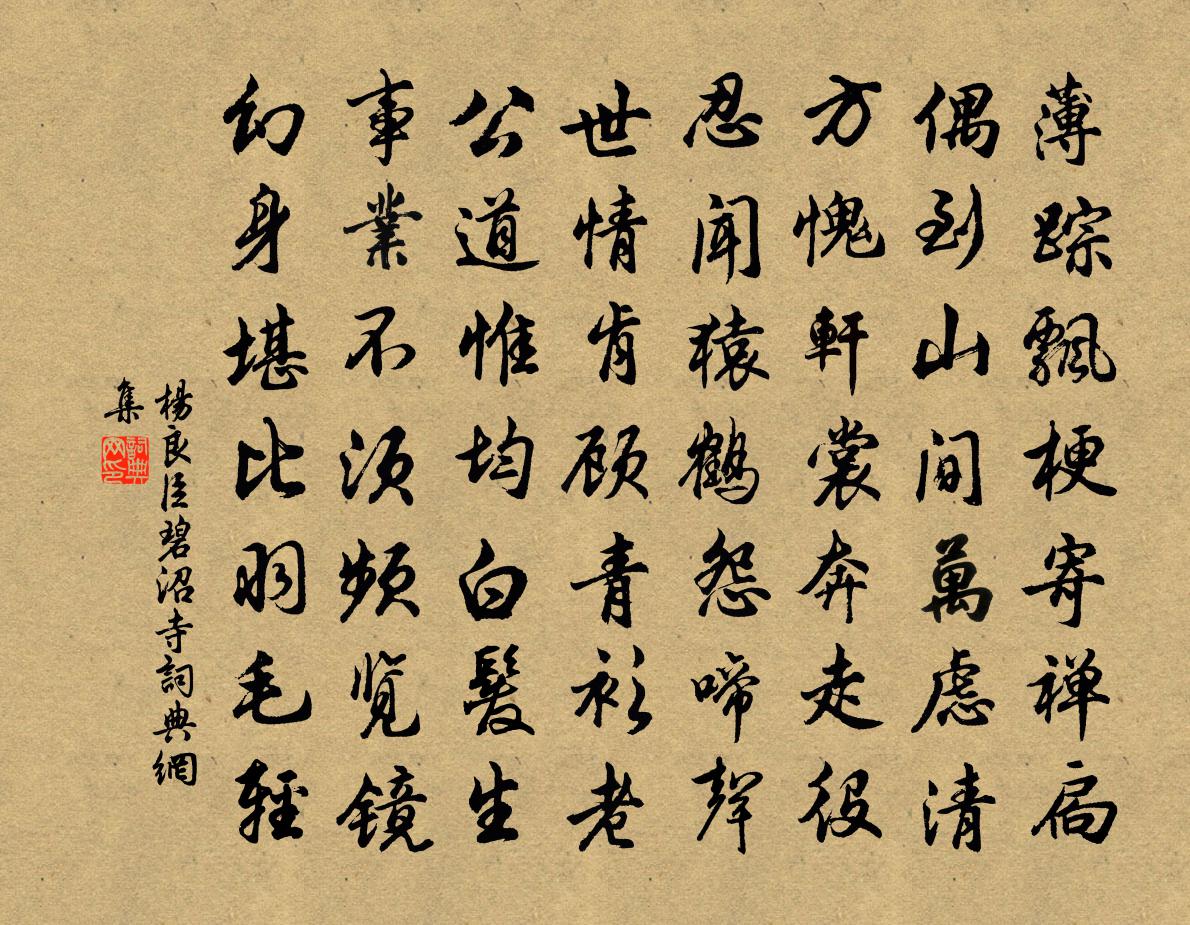 薄踪飘梗寄禅扃
偶到山间萬慮清
方愧軒裳奔走役
忍闻猿鹤怨啼聲
世情肯顾青衫老
公道惟均白髮生
事業不须频览镜
幻身堪比羽毛輕
楊良臣碧沼寺詞典網
集
詞典
网印